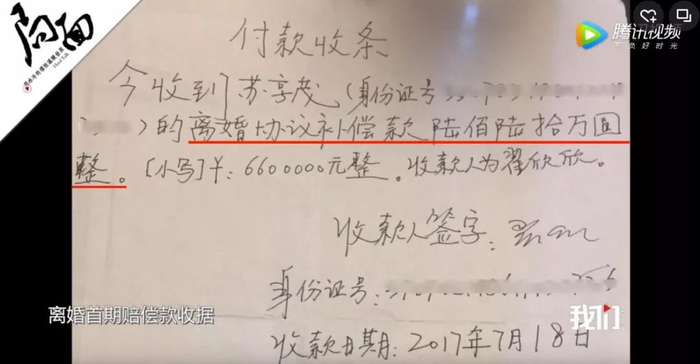 局面
腾讯视频
不负好时光
付款收条
今收到苏享茂(身份证号
)的离婚协议补偿款陆佰陆拾万圆
整。[小写]¥:6600000元整。收款人为翟欣欣。
收款人签字:
身份证号:
收款日期:2017年7月18日
离婚首期赔偿款收据
我们